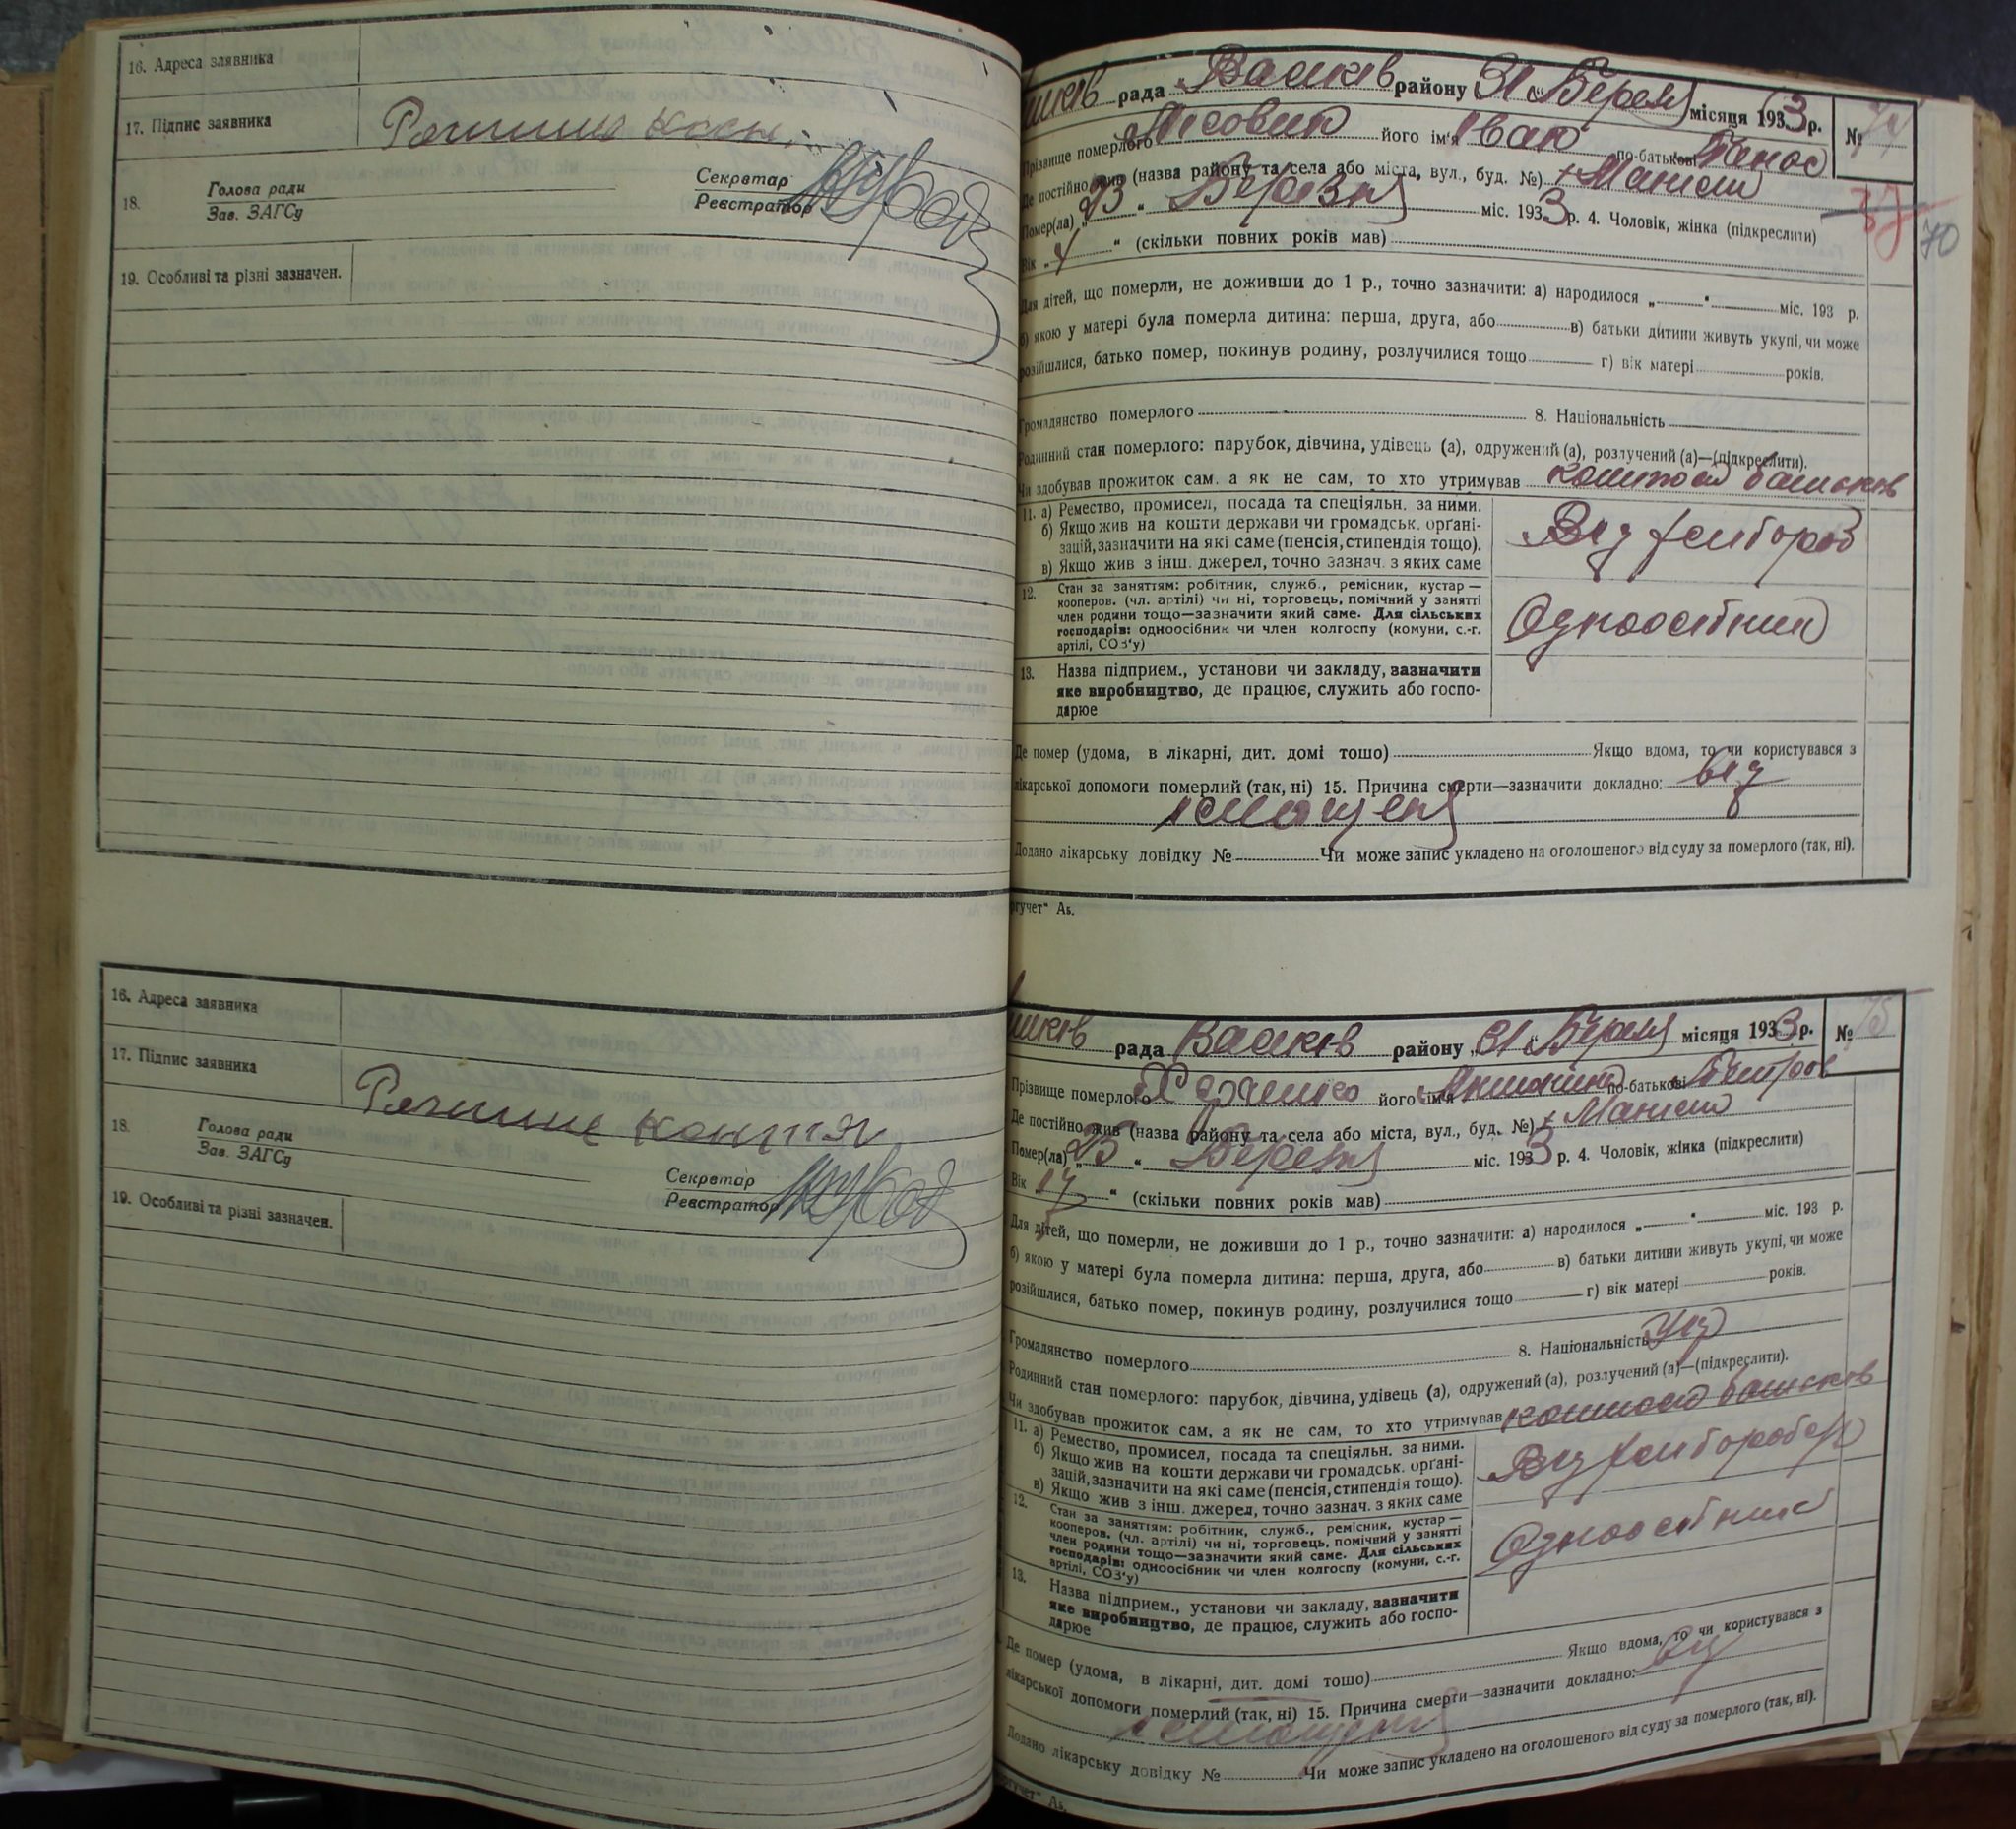 16. Адреса заявника
17. Підпис заявника
18. Голова ради
Зав. ЗАГСу
Секретар
Реєстратор
19. Особливі та різні зазначен.
рада району 31 місяця 1933 р. №
Прізвище померлого його ім'я Іван по-батькові
Де постійно жив (назва району та села або міста, вул., буд. №)
37
70
Помер(ла) „23 “ Березня міс. 1933 р. 4. Чоловік, жінка (підкреслити)
Вік „4 “ (скільки повних років мав)
Для дітей, що померли, не доживши до 1 р., точно зазначити: а) народилося „ “ міс. 193 р.
б) якою у матері була померла дитина: перша, друга, або в) батьки дитини живуть укупі, чи може
розійшлися, батько помер, покинув родину, розлучилися тощо г) вік матері років.
Громадянство померлого 8. Національність
Родинний стан померлого: парубок, дівчина, удівець (а), одружений (а), розлучений (а)—(підкреслити).
Чи здобував прожиток сам, а як не сам, то хто утримував коштом батьків
11. а) Ремество, промисел, посада та спеціяльн. за ними.
б) Якщо жив на кошти держави чи громадськ. орґані-
зацій, зазначити на які саме (пенсія, стипендія тощо).
в) Якщо жив з інш. джерел, точно зазнач. з яких саме
12. Стан за заняттям: робітник, служб., ремісник, кустар —
кооперов. (чл. артілі) чи ні, торговець, помічний у занятті
член родини тощо—зазначити який саме. Для сільських
господарів: одноосібник чи член колгоспу (комуни, с.-г.
артілі, СОЗ'у)
Одноосібник
13. Назва підприєм., установи чи закладу, зазначити
яке виробництво, де працює, служить або госпо-
дарює
Де помер (удома, в лікарні, дит. домі тощо) Якщо вдома, то чи користувався з
лікарської допомоги померлий (так, ні) 15. Причина смерти—зазначити докладно: від
Додано лікарську довідку № Чи може запис укладено на оголошеного від суду за померлого (так, ні).
16. Адреса заявника
17. Підпис заявника
18. Голова ради
Зав. ЗАГСу
Секретар
Реєстратор
19. Особливі та різні зазначен.
рада району „31 місяця 1933 р. № 75
Прізвище померлого його ім'я по-батькові
Де постійно жив (назва району та села або міста, вул., буд. №)
Помер(ла) „25 “ Березня міс. 1933 р. 4. Чоловік, жінка (підкреслити)
Вік 17 “ (скільки повних років мав)
Для дітей, що померли, не доживши до 1 р., точно зазначити: а) народилося „ “ міс. 193 р.
б) якою у матері була померла дитина: перша, друга, або в) батьки дитини живуть укупі, чи може
розійшлися, батько помер, покинув родину, розлучилися тощо г) вік матері років.
Громадянство померлого 8. Національність Укр
Родинний стан померлого: парубок, дівчина, удівець (а), одружений (а), розлучений (а)—(підкреслити).
Чи здобував прожиток сам, а як не сам, то хто утримував коштом батьків
11. а) Ремество, промисел, посада та спеціяльн. за ними.
б) Якщо жив на кошти держави чи громадськ. орґані-
зацій, зазначити на які саме (пенсія, стипендія тощо).
в) Якщо жив з інш. джерел, точно зазнач. з яких саме
12. Стан за заняттям: робітник, служб., ремісник, кустар —
кооперов. (чл. артілі) чи ні, торговець, помічний у занятті
член родини тощо—зазначити який саме. Для сільських
господарів: одноосібник чи член колгоспу (комуни, с.-г.
артілі, СОЗ'у)
Одноосібник
13. Назва підприєм., установи чи закладу, зазначити
яке виробництво, де працює, служить або госпо-
дарює
Де помер (удома, в лікарні, дит. домі тощо) Якщо вдома, то чи користувався з
лікарської допомоги померлий (так, ні) 15. Причина смерти—зазначити докладно: від
Додано лікарську довідку № Чи може запис укладено на оголошеного від суду за померлого (так, ні).